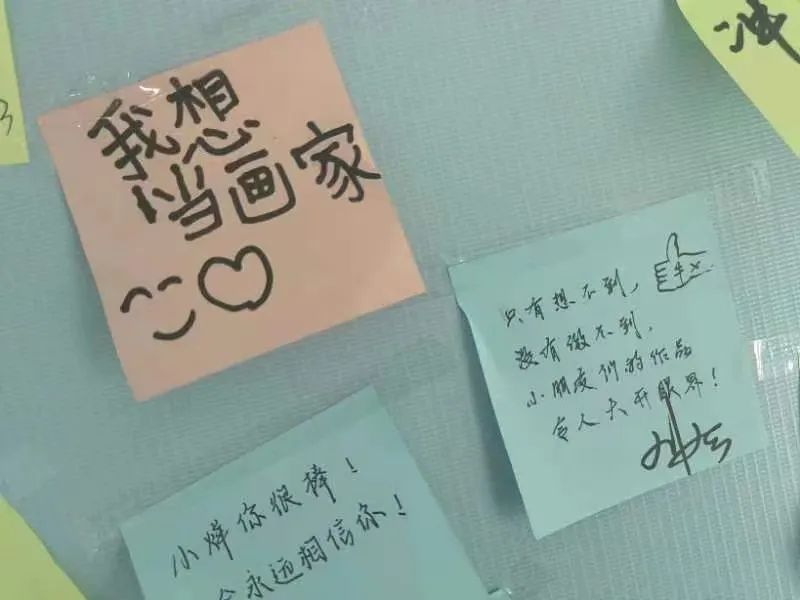 我想
当画家
只有想不到，
没有做不到，
小朋友们的作品
令人大开眼界！
小烨你很棒！
永远相信你！